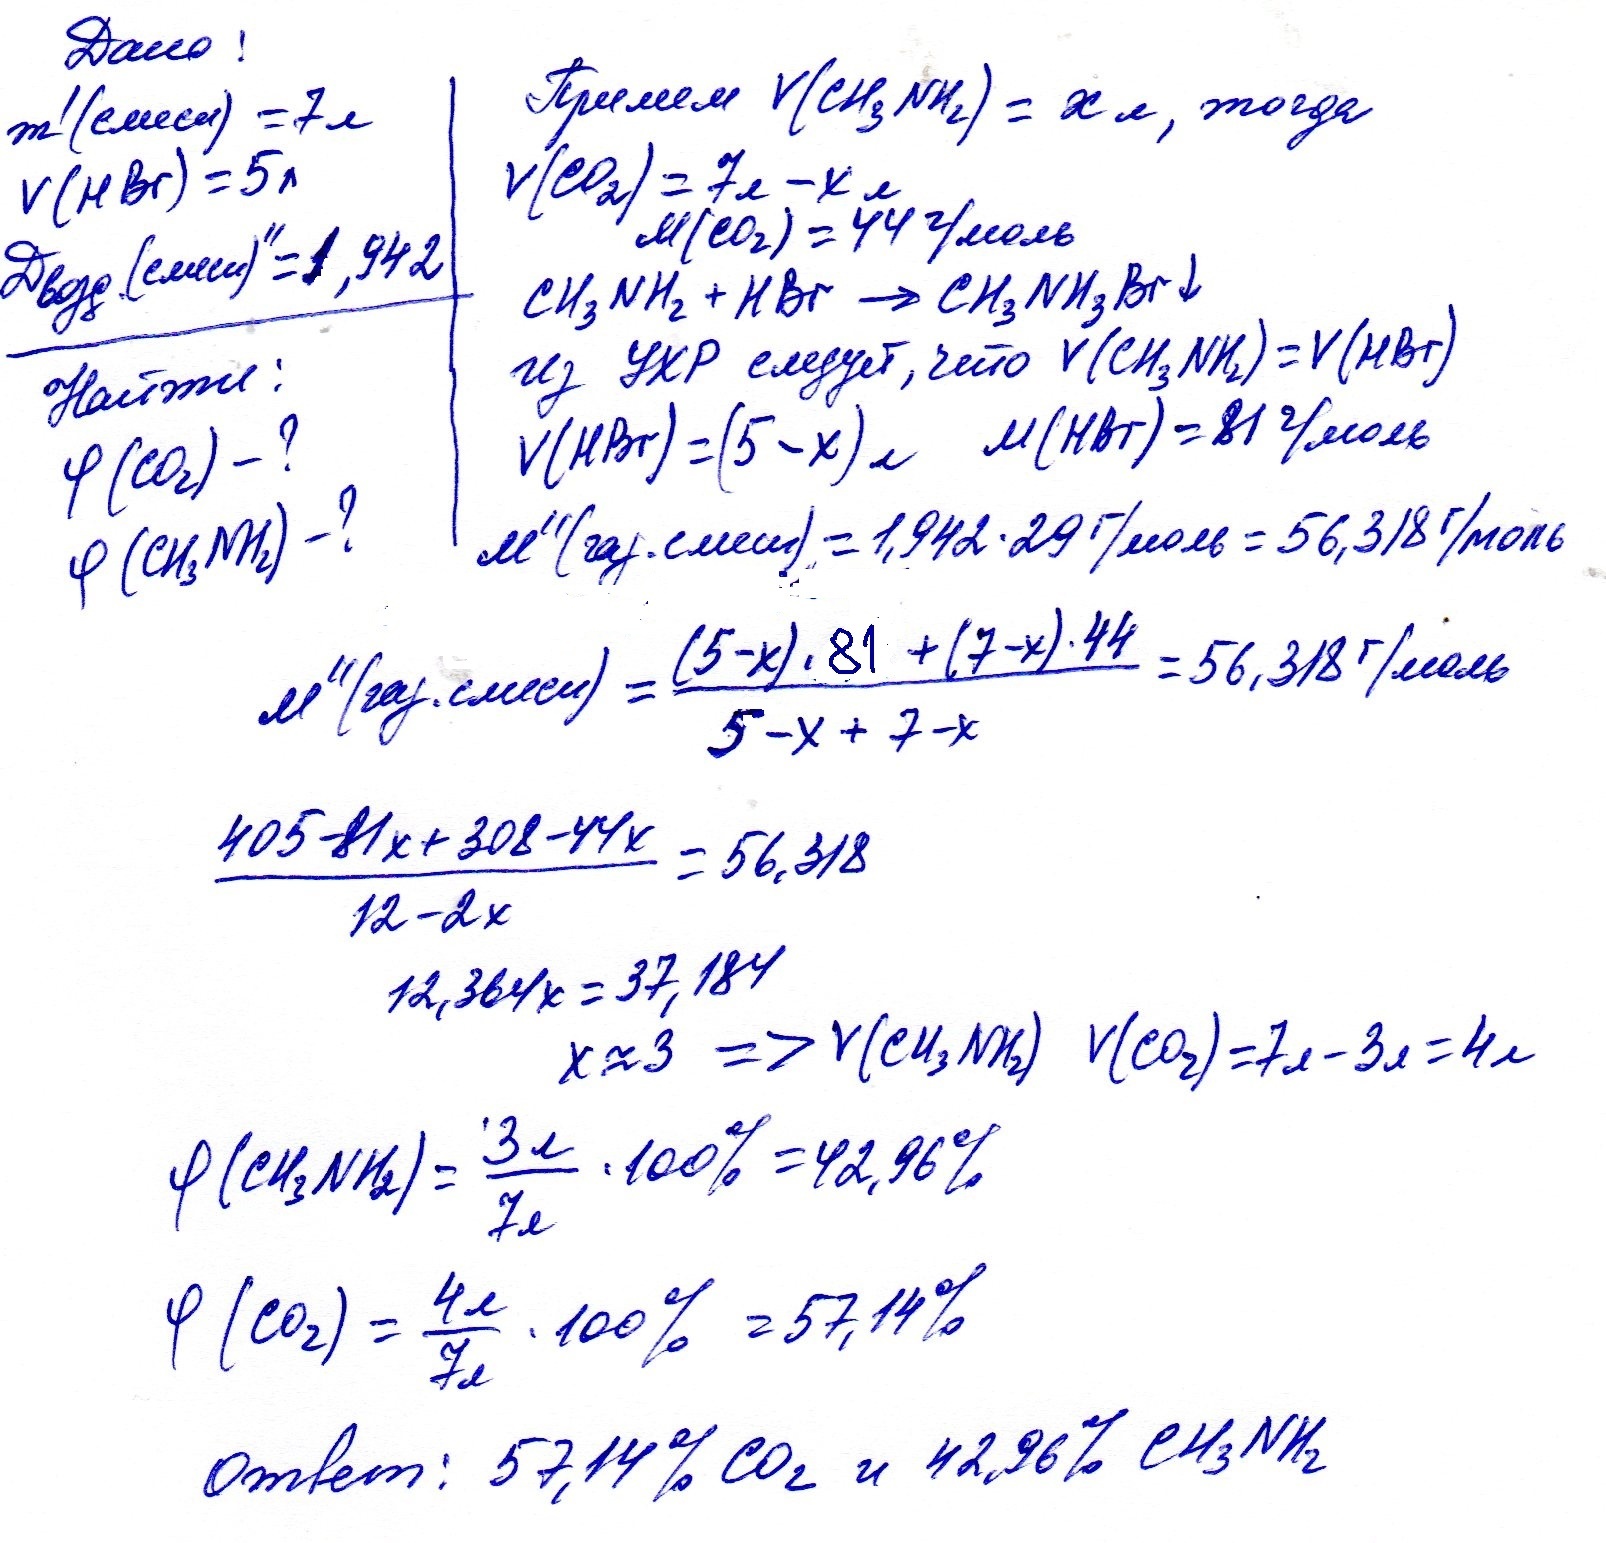 Дано:
m'(смеси) = 7л
V(HBr) = 5л
Dвозд.(смеси)" = 1,942
Найти:
φ(CO₂) - ?
φ(CH₃NH₂) - ?
Примем V(CH₃NH₂) = x л, тогда
V(CO₂) = 7л - x л
M(CO₂) = 44 г/моль
CH₃NH₂ + HBr → CH₃NH₃Br↓
из УХР следует, что V(CH₃NH₂) = V(HBr)
V(HBr) = (5 - x) л M(HBr) = 81 г/моль
M"(газ.смеси) = 1,942 · 29 г/моль = 56,318 г/моль
M"(газ.смеси) = (5-x) · 81 + (7-x) · 44 / 5 - x + 7 - x = 56,318 г/моль
405 - 81x + 308 - 44x / 12 - 2x = 56,318
12,364x = 37,184
x ≈ 3 => V(CH₃NH₂) V(CO₂) = 7л - 3л = 4л
φ(CH₃NH₂) = 3л / 7л · 100% = 42,96%
φ(CO₂) = 4л / 7л · 100% = 57,14%
Ответ: 57,14% CO₂ и 42,96% CH₃NH₂